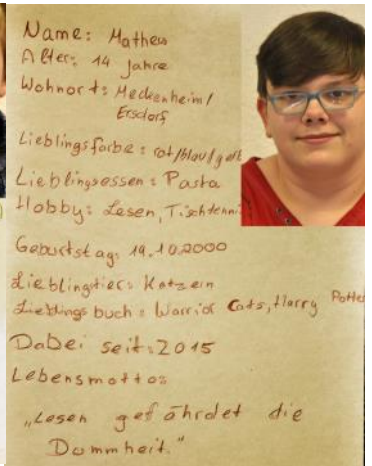 Name: Mathew
Alter: 14 Jahre
Wohnort: Meckenheim/
Ersdorf
Lieblingsfarbe: rot/blau/gelb
Lieblingsessen: Pasta
Hobby: Lesen, Tischtenni
Geburtstag: 19.10.2000
Lieblingstier: Katzein
Lieblingsbuch: Warrior Cats, Harry Potter
Dabei seit: 2015
Lebensmotto:
„Lesen gefährdet die
Dummheit."